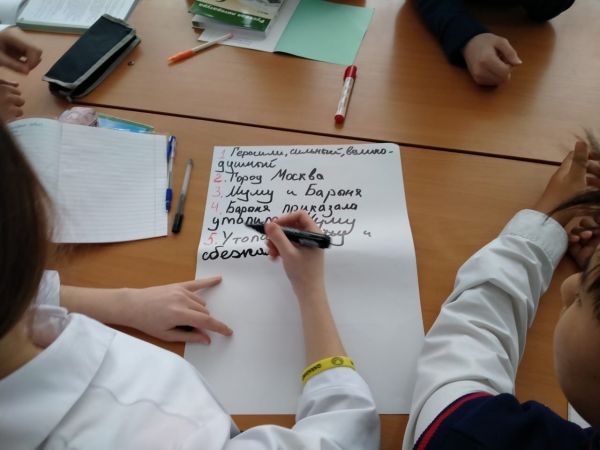 1. Герасим, сильный, велико-
душный
2. Город Москва
3. Муму и Барыня
4. Барыня приказала
утопить Муму
5. и
сбежал